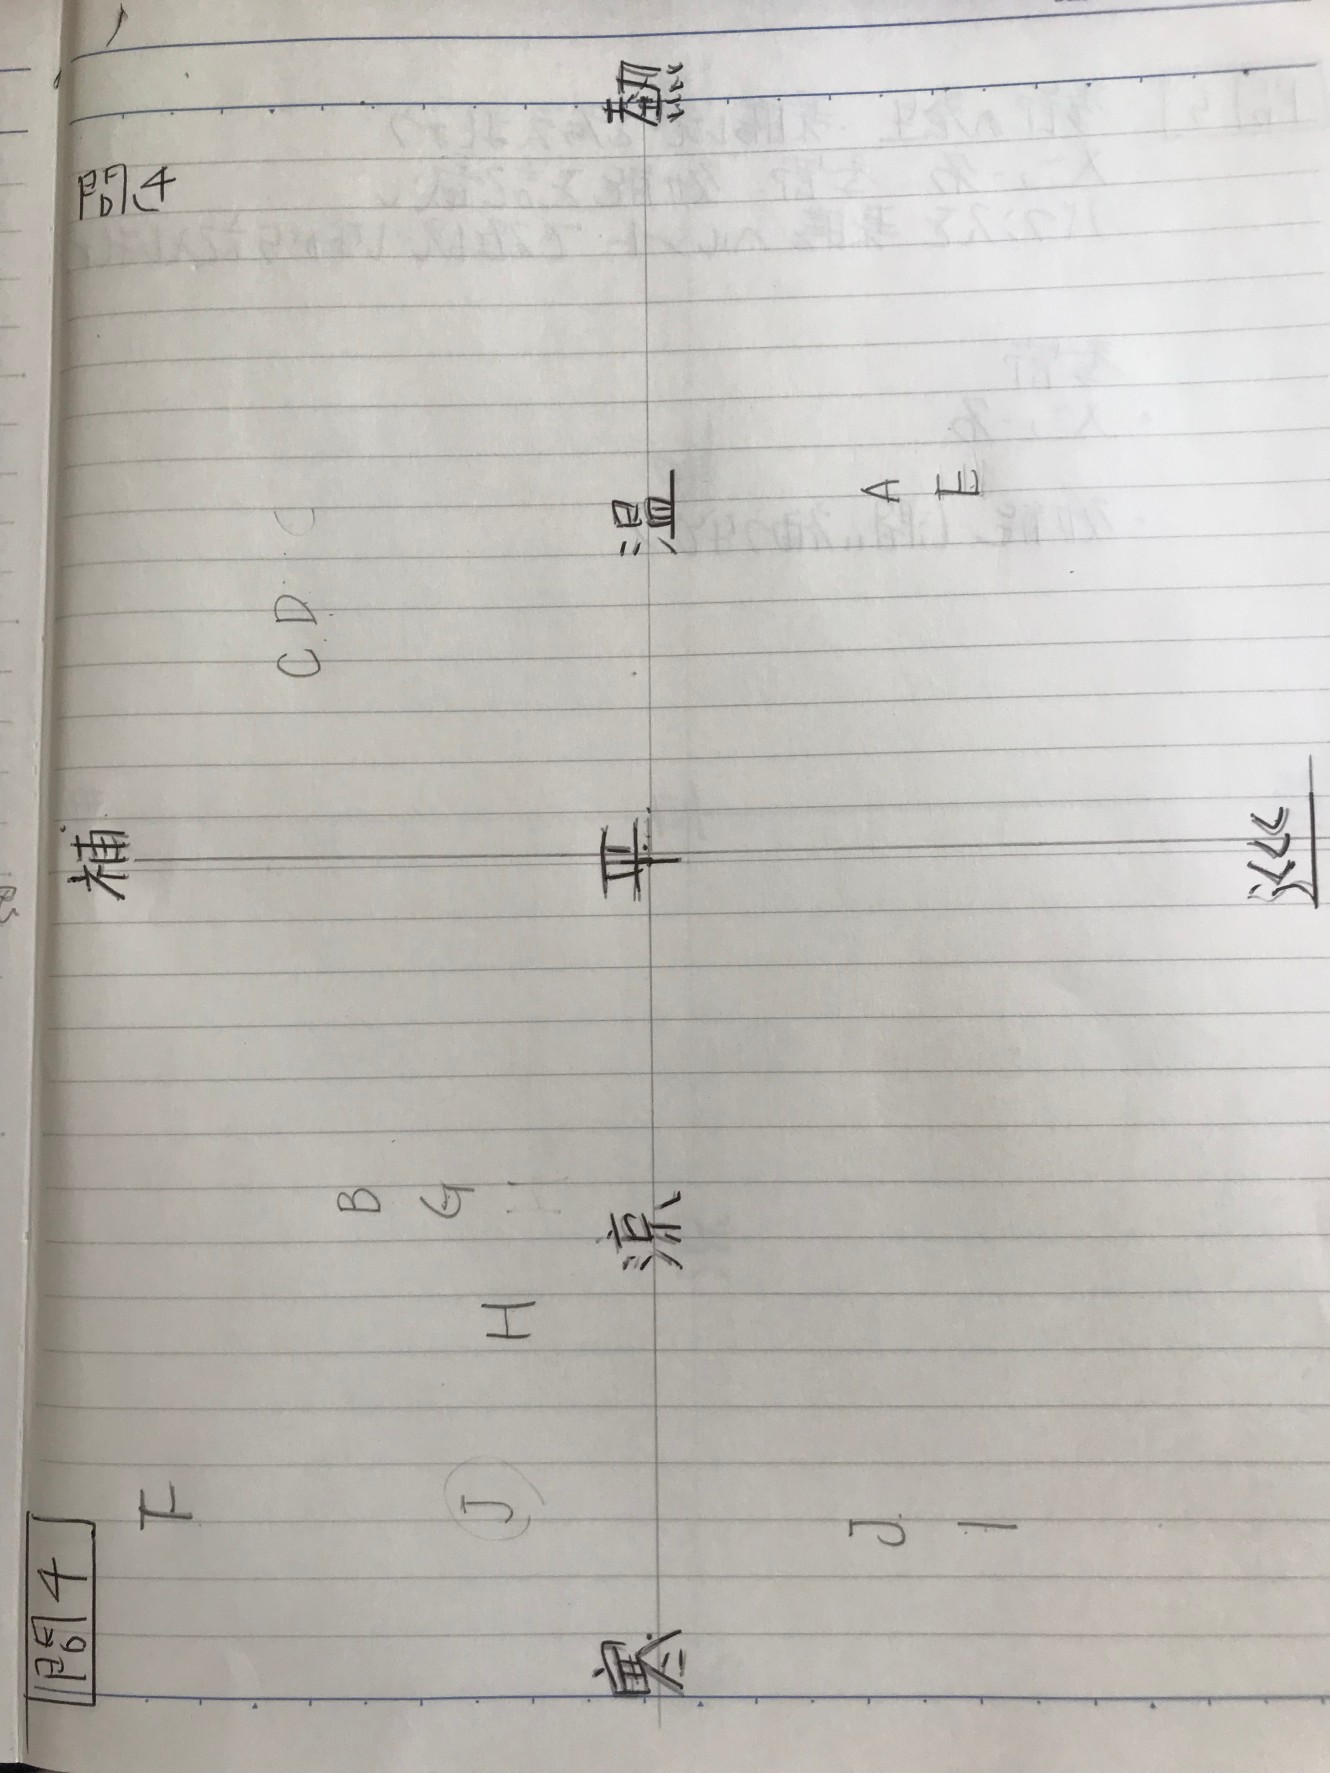 問4
問4
補
F
C D
B
G
J
H
寒 涼 平 温 熱
J
A
I
E
巡